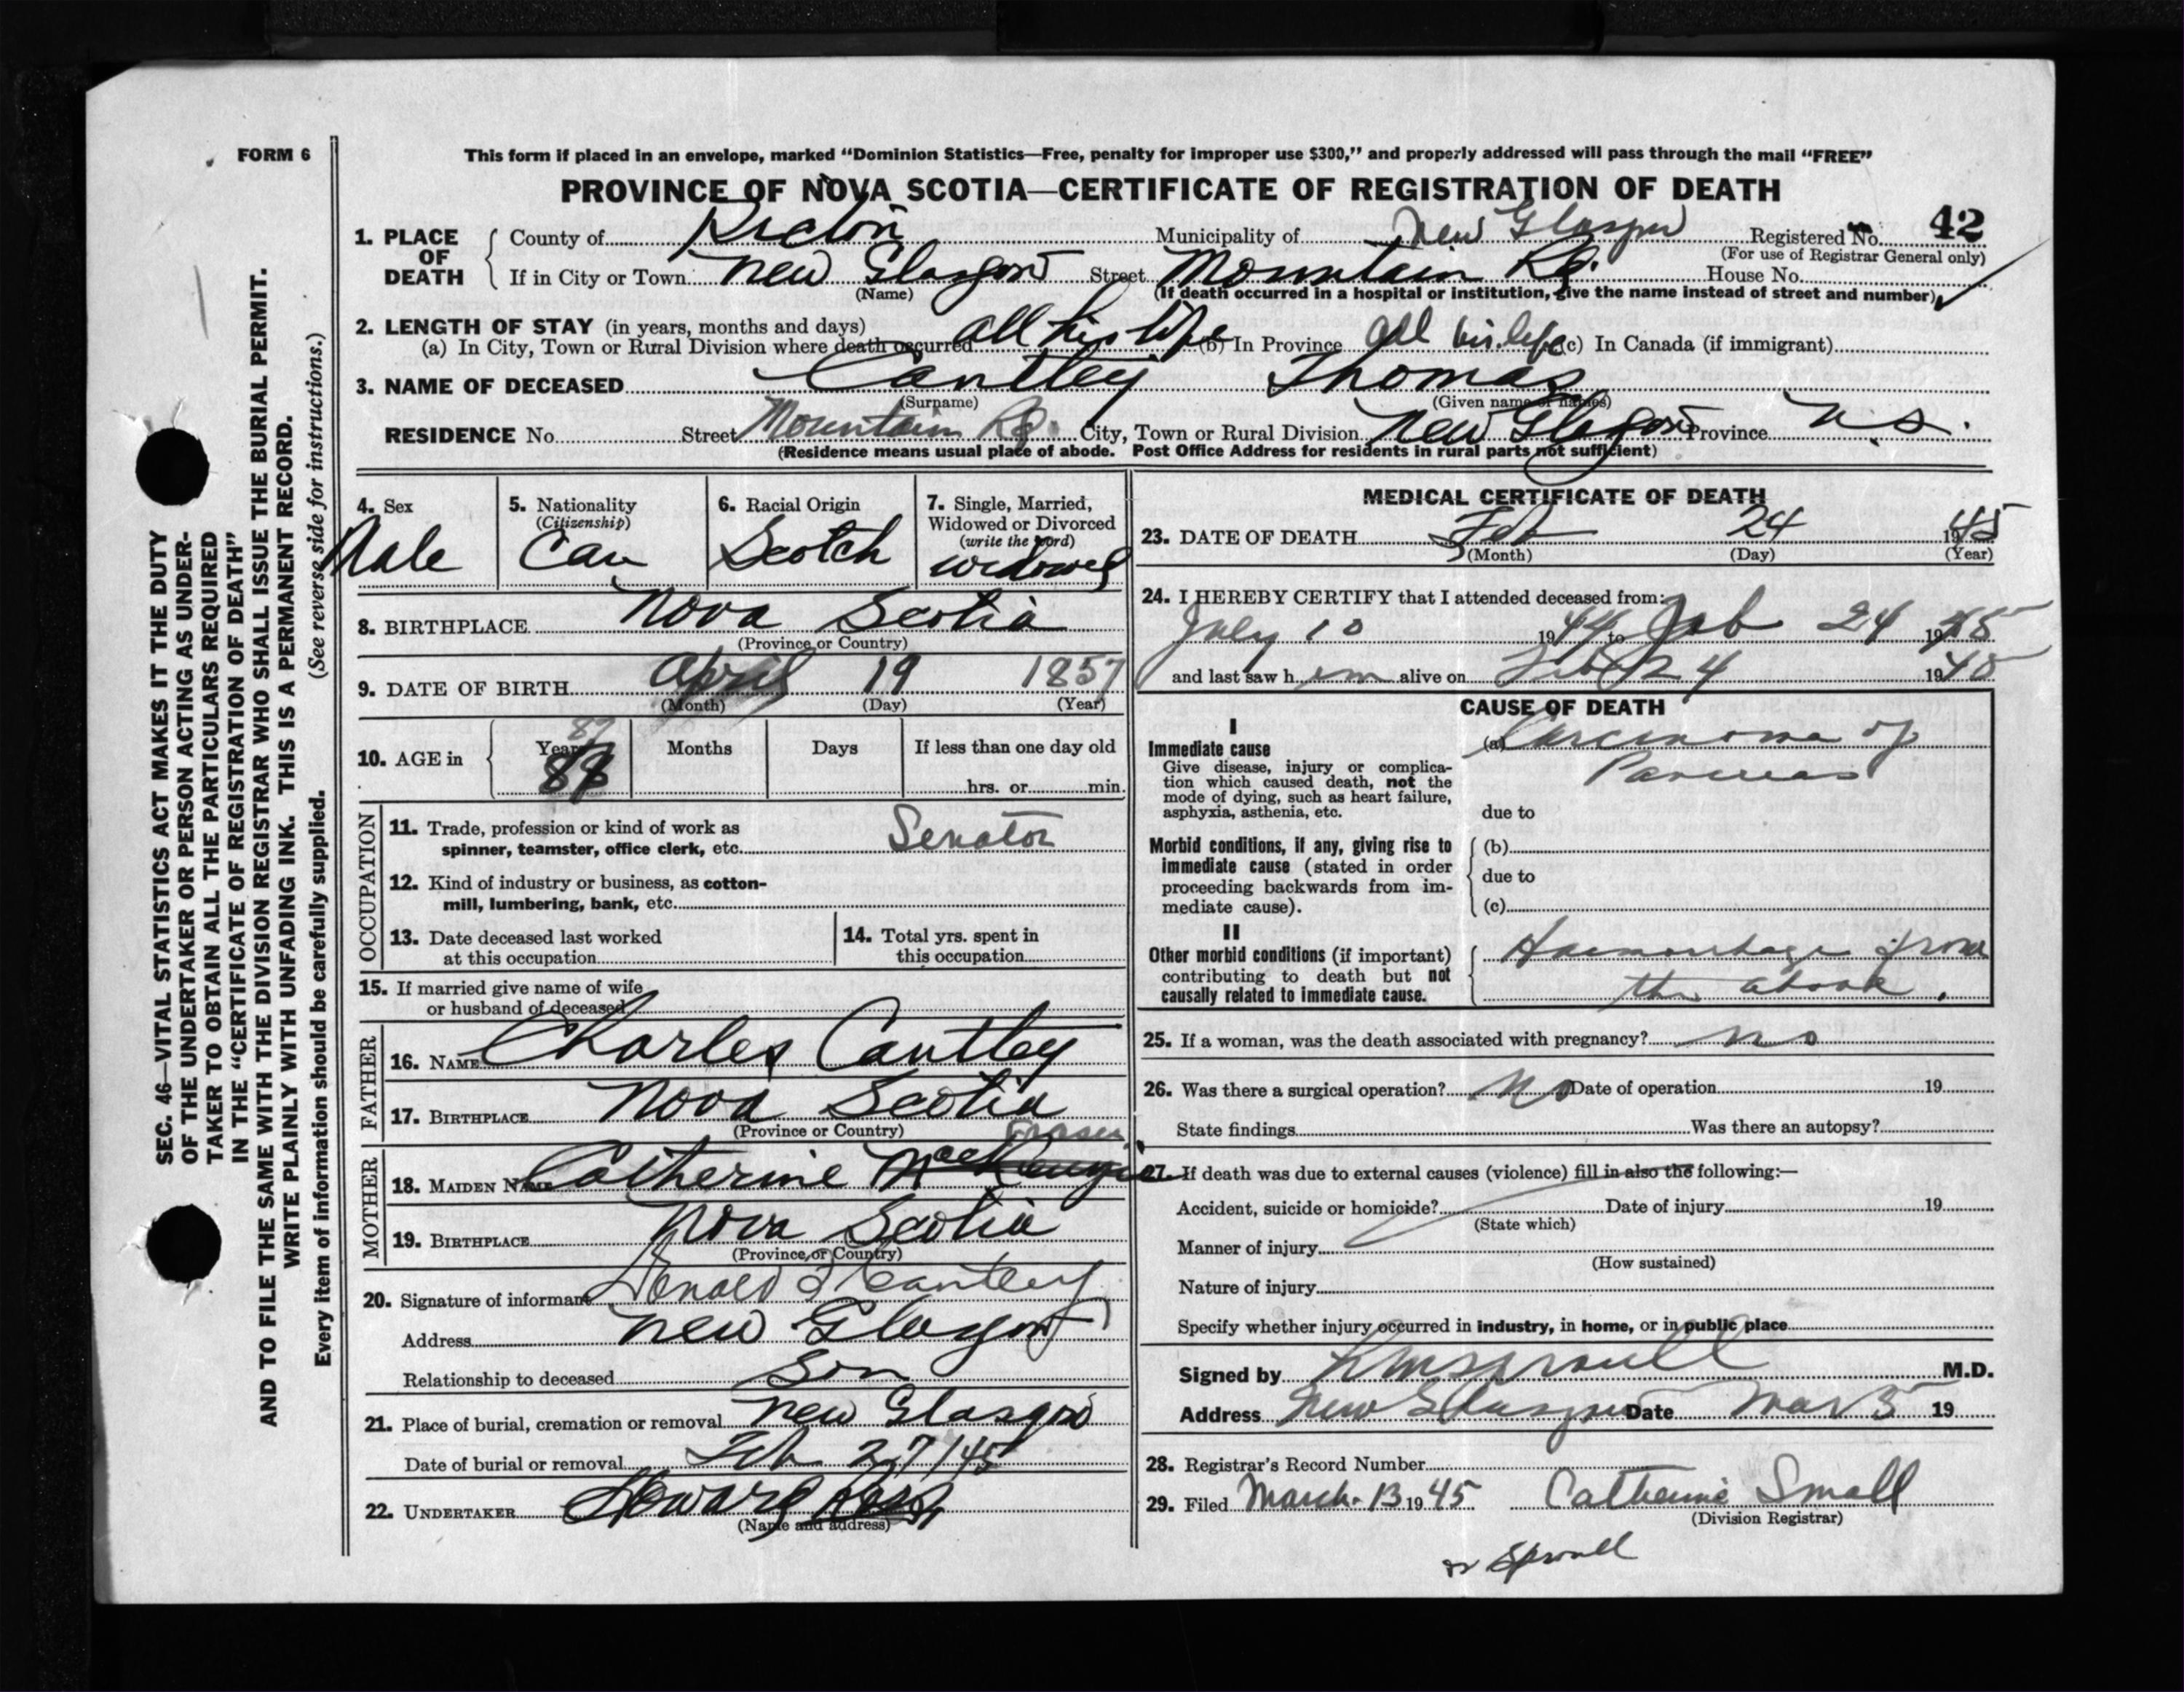 FORM 6
This form if placed in an envelope, marked “Dominion Statistics—Free, penalty for improper use $300,” and properly addressed will pass through the mail “FREE”
PROVINCE OF NOVA SCOTIA—CERTIFICATE OF REGISTRATION OF DEATH
42
1. PLACE OF DEATH County of Pictou Municipality of New Glasgow Registered No.
(For use of Registrar General only)
If in City or Town New Glasgow Street Mountain Rd. House No.
(Name) (If death occurred in a hospital or institution, give the name instead of street and number)
2. LENGTH OF STAY (in years, months and days)
(a) In City, Town or Rural Division where death occurred all his life (b) In Province all his life (c) In Canada (if immigrant)
3. NAME OF DECEASED Cantley Thomas
(Surname) (Given name or names)
RESIDENCE No. Street Mountain Rd. City, Town or Rural Division New Glasgow Province N.S.
(Residence means usual place of abode. Post Office Address for residents in rural parts not sufficient)
4. Sex
Male
5. Nationality
(Citizenship)
Can
6. Racial Origin
Scotch
7. Single, Married,
Widowed or Divorced
(write the word)
widowed
8. BIRTHPLACE Nova Scotia
(Province or Country)
9. DATE OF BIRTH April 19 1857
(Month) (Day) (Year)
10. AGE in Years Months Days If less than one day old
87
hrs. or min.
OCCUPATION
11. Trade, profession or kind of work as
spinner, teamster, office clerk, etc. Senator
12. Kind of industry or business, as cotton-
mill, lumbering, bank, etc.
13. Date deceased last worked
at this occupation
14. Total yrs. spent in
this occupation
15. If married give name of wife
or husband of deceased
FATHER
16. NAME Charles Cantley
17. BIRTHPLACE Nova Scotia
(Province or Country)
MOTHER
Fraser
18. MAIDEN NAME Catherine MacKenzie
19. BIRTHPLACE Nova Scotia
(Province or Country)
20. Signature of informant Donald F Cantley
Address New Glasgow
Relationship to deceased Son
21. Place of burial, cremation or removal New Glasgow
Date of burial or removal Feb 27/45
22. UNDERTAKER Howard
(Name and address)
MEDICAL CERTIFICATE OF DEATH
23. DATE OF DEATH Feb 24 1945
(Month) (Day) (Year)
24. I HEREBY CERTIFY that I attended deceased from:
July 10 1944 to Feb 24 1945
and last saw him alive on Feb 24 1945
CAUSE OF DEATH
I
Immediate cause
Give disease, injury or complica-
tion which caused death, not the
mode of dying, such as heart failure,
asphyxia, asthenia, etc.
(a) Carcinoma of
Pancreas
due to
Morbid conditions, if any, giving rise to
immediate cause (stated in order
proceeding backwards from im-
mediate cause).
(b)
due to
(c)
II
Other morbid conditions (if important)
contributing to death but not
causally related to immediate cause.
Haemorrhage from
the above.
25. If a woman, was the death associated with pregnancy? no
26. Was there a surgical operation? No Date of operation 19
State findings Was there an autopsy?
27. If death was due to external causes (violence) fill in also the following:—
Accident, suicide or homicide? Date of injury 19
(State which)
Manner of injury
(How sustained)
Nature of injury
Specify whether injury occurred in industry, in home, or in public place
Signed by Sproull M.D.
Address New Glasgow Date Mar 5 19
28. Registrar's Record Number
29. Filed March 13 1945 Catherine Small
(Division Registrar)
Sproull
SEC. 46—VITAL STATISTICS ACT MAKES IT THE DUTY
OF THE UNDERTAKER OR PERSON ACTING AS UNDER-
TAKER TO OBTAIN ALL THE PARTICULARS REQUIRED
IN THE “CERTIFICATE OF REGISTRATION OF DEATH”
AND TO FILE THE SAME WITH THE DIVISION REGISTRAR WHO SHALL ISSUE THE BURIAL PERMIT.
WRITE PLAINLY WITH UNFADING INK. THIS IS A PERMANENT RECORD.
Every item of information should be carefully supplied. (See reverse side for instructions.)